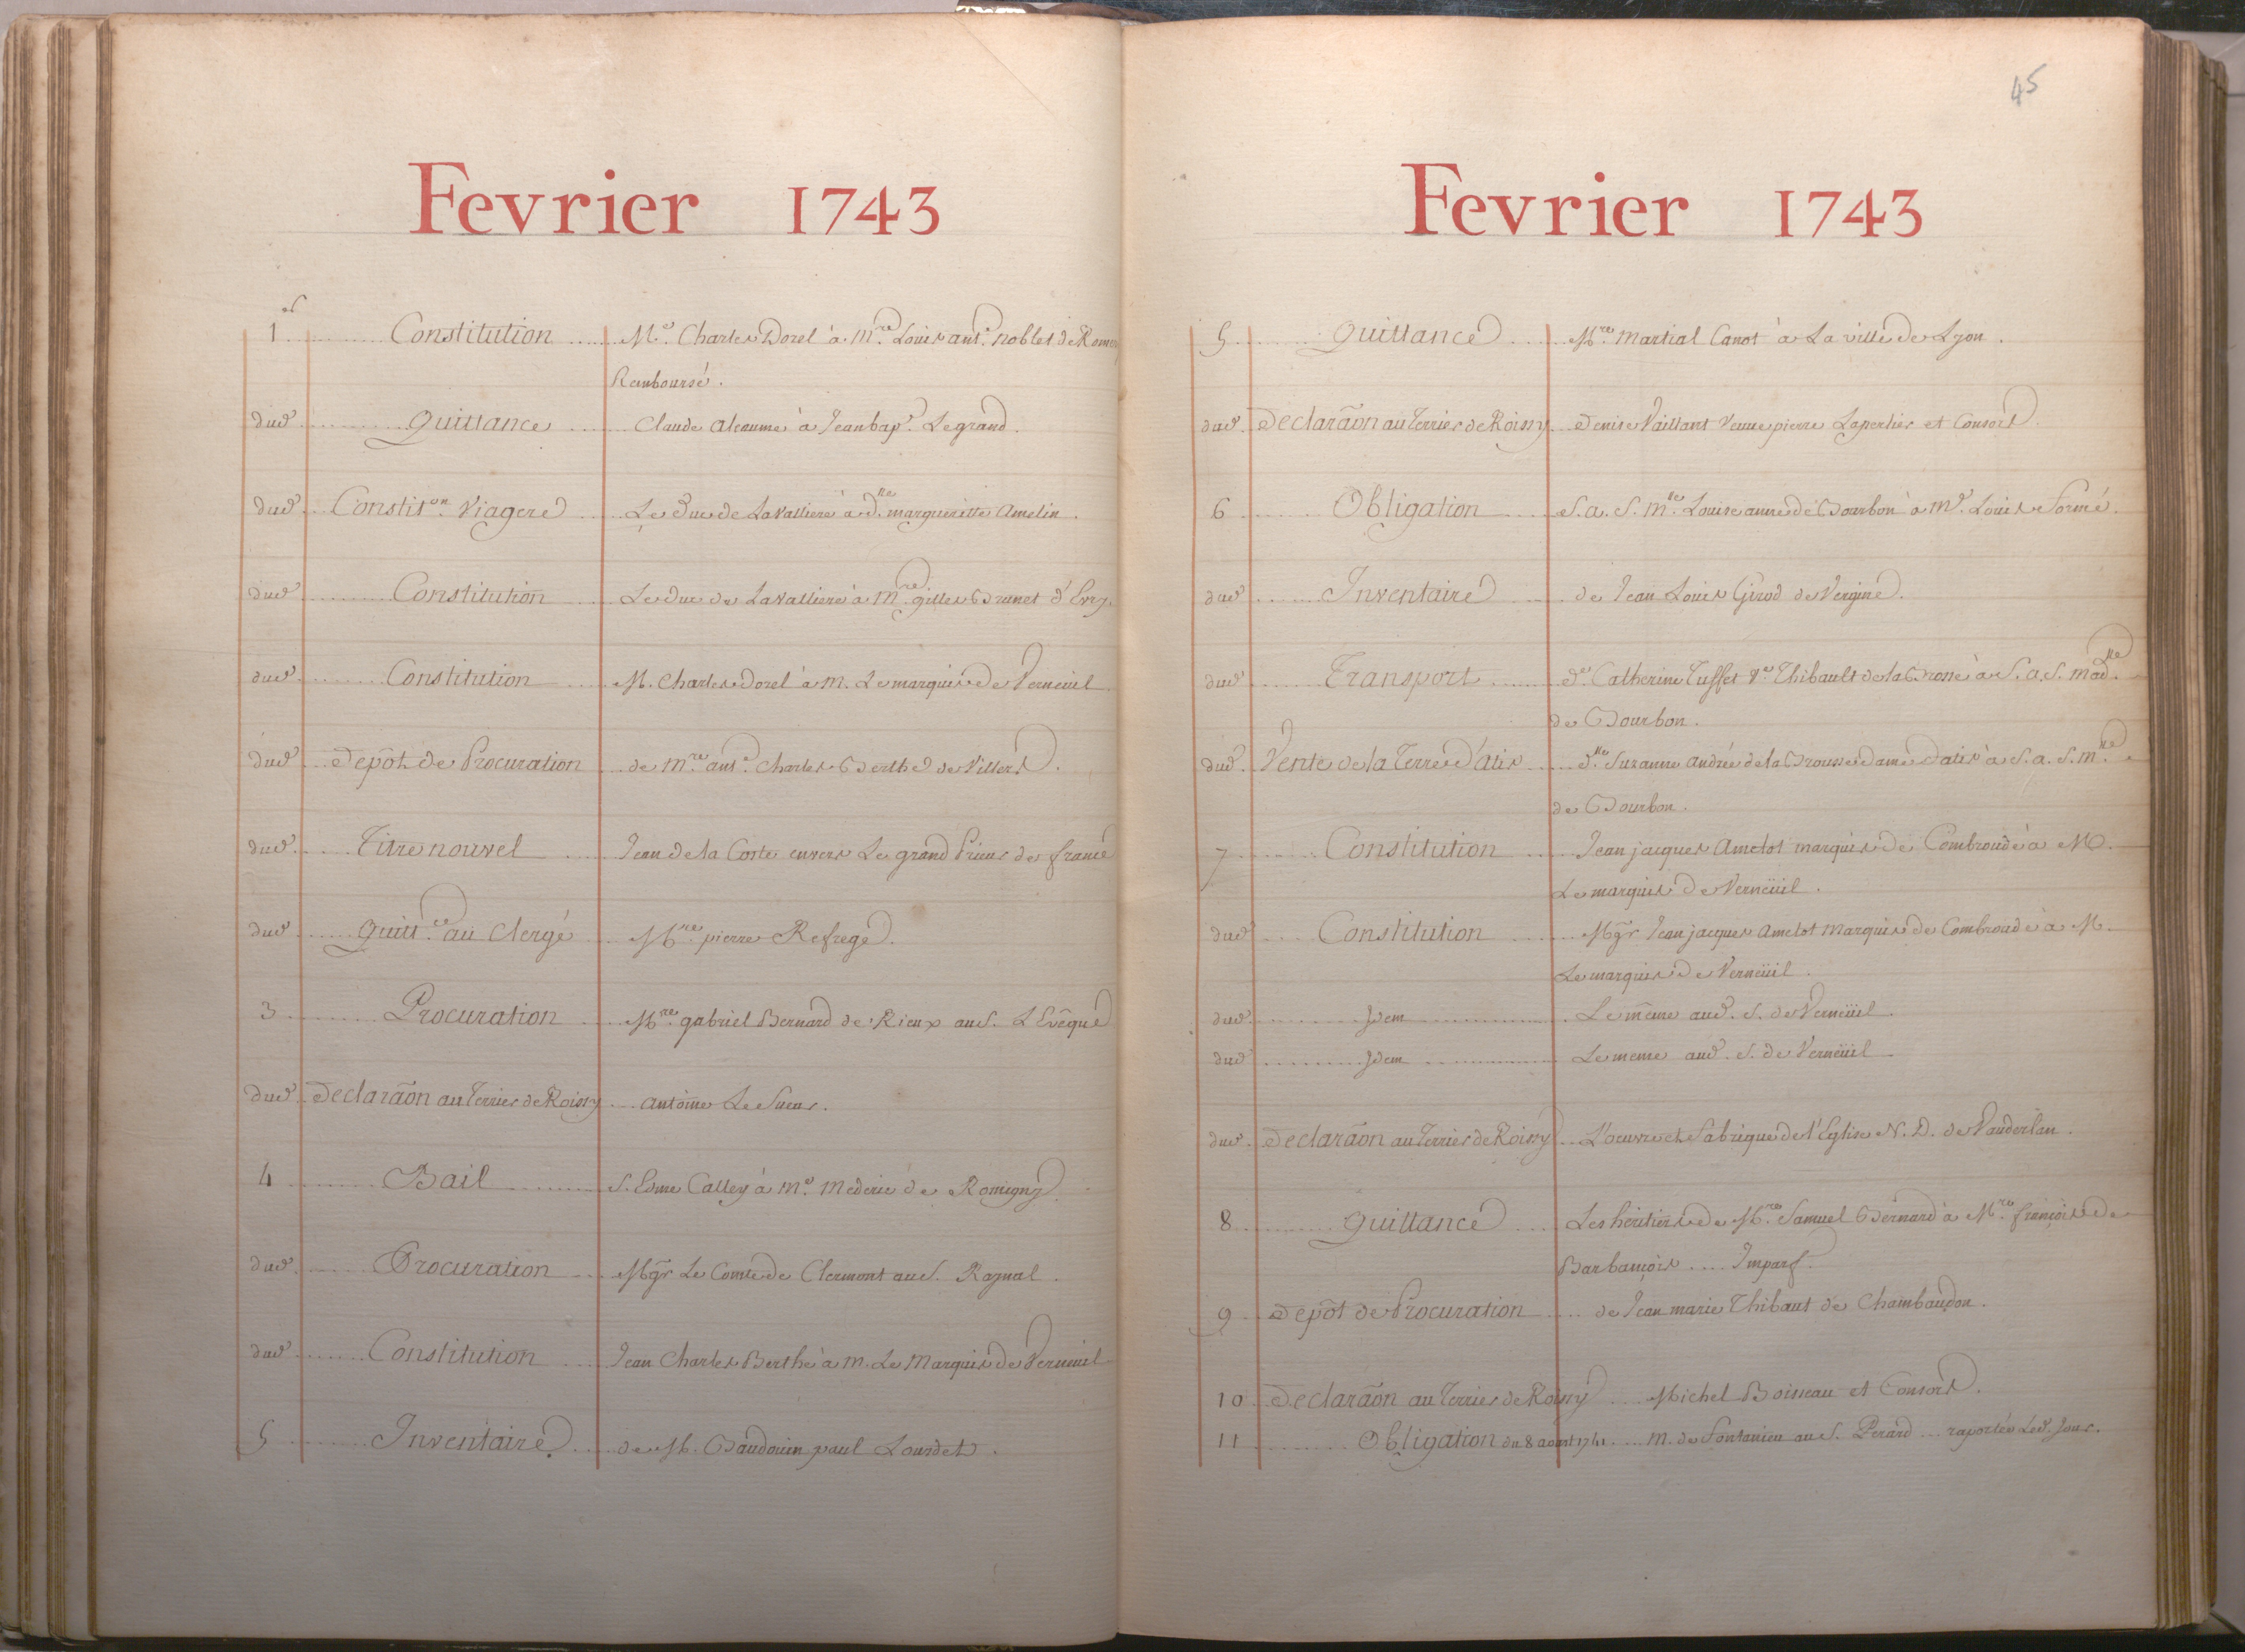 Fevrier 1743
1er Constitution Me. Charles Dorel à Mre. Louis ant. Noblet de Romer
Remboursé.
dud. Quittance Claude Aleaume à Jean bap. Legrand.
dud. Constit.on Viagere Le Duc de LaValliere à dlle. marguerite Amelin.
dud. Constitution Le Duc de LaValliere à Mre. gilles Brunet d'Evry.
dud. Constitution M. Charles Dorel à M. Le marquis de Verneuil
dud. Depôt de Procuration de Mre. ant. Charles Berthe de Villers.
dud. Titre nouvel Jean de la Coste envers Le grand Prieur de france
dud. Quitt.ce au Clergé Mre. pierre Refrege.
3 Procuration Mre. gabriel Bernard de Rieux au S. L'Evêque
dud. Declaraõn au Terrier de Roissy Antoine Le Sueur.
4 Bail S. Edme Calley à Me. Mederic de Romigny.
dud. Procuration Mgr Le Comte de Clermont au S. Raynal.
dud. Constitution Jean Charles Berthe à M. Le Marquis de Verneuil
5 Inventaire de M. Baudouin paul Lourdet.
45
Fevrier 1743
5 Quittance Mre. Martial Canot à La ville de Lyon.
dud. Declaraõn au Terrier de Roissy Denise Vaillant Veuve pierre Lapertier et Consort.
6 Obligation S. a. S. Mlle. Louise anne de Bourbon à Me. Louis Formé.
dud. Inventaire de Jean Louis Girod de Vergine.
dud. Transport de. Catherine Tuffet Ve. Thibault de la Brosse à S. a. S. Madlle.
de Bourbon.
dud. Vente de la Terre d'atis dlle. Suzanne andrée de la Brousse dame d'atis à S. a. S. Mlle.
de Bourbon.
7 Constitution Jean jacques Amelot marquis de Combronde à M.
Le marquis de Verneüil.
dud. Constitution Mgr Jean jacques Amelot Marquis de Combronde à M.
Le marquis de Verneüil.
dud. Idem Le même aud. S. de Verneüil.
dud. Idem Le meme aud. S. de Verneüil
dud. Declaraõn au Terrier de Roissy L'oeuvre et fabrique de l'Eglise N. D. de Vauderlan.
8 Quittance Les héritiers de Mre. Samuel Bernard à Mre. françois de
Barbançois .... Imparf.
9 Depôt de Procuration de Jean marie Thibaut de Chambaudon.
10 Declaraõn au Terrier de Roissy Michel Boisseau et Consort.
11 Obligation du 8 aoust 1741 M. de Fontanieu au S. Perard ... raportée Led. Jour.